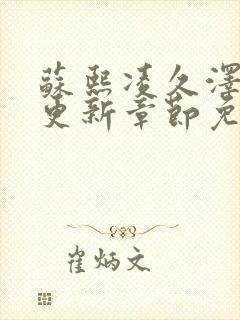 蘇熙凌久澤
更新章節免
崔炳文